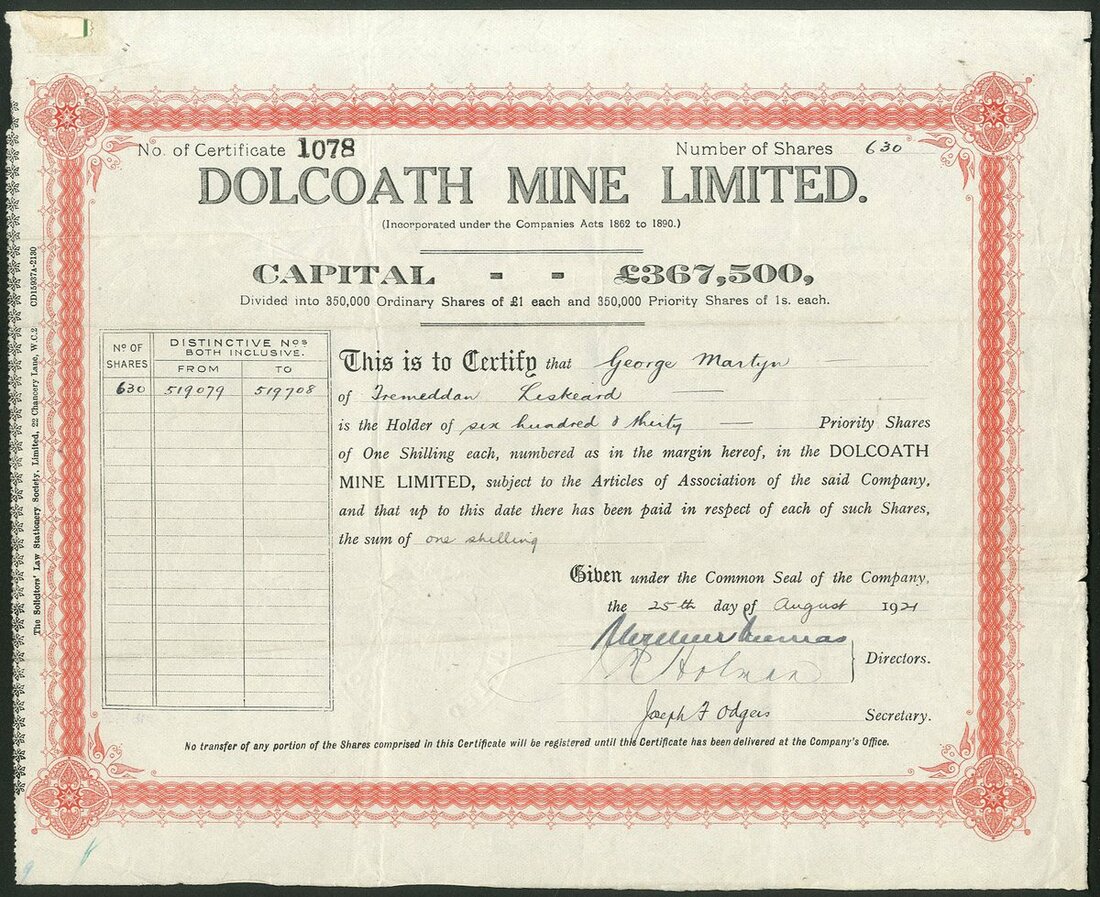 No. of Certificate 1078 Number of Shares 630
DOLCOATH MINE LIMITED.
(Incorporated under the Companies Acts 1862 to 1890.)
CAPITAL - - £367,500,
Divided into 350,000 Ordinary Shares of £1 each and 350,000 Priority Shares of 1s. each.
Nº OF SHARES
DISTINCTIVE Nos
BOTH INCLUSIVE.
FROM TO
630 519079 519708
This is to Certify that George Martyn
of Tremeddan Liskeard
is the Holder of six hundred & thirty Priority Shares
of One Shilling each, numbered as in the margin hereof, in the DOLCOATH
MINE LIMITED, subject to the Articles of Association of the said Company,
and that up to this date there has been paid in respect of each of such Shares,
the sum of one shilling
Given under the Common Seal of the Company,
the 25th day of August 1921
Directors.
Holman
Joseph F Odgers Secretary.
No transfer of any portion of the Shares comprised in this Certificate will be registered until this Certificate has been delivered at the Company's Office.
The Solicitors' Law Stationery Society, Limited, 22 Chancery Lane, W.C.2 CD15937A-2130